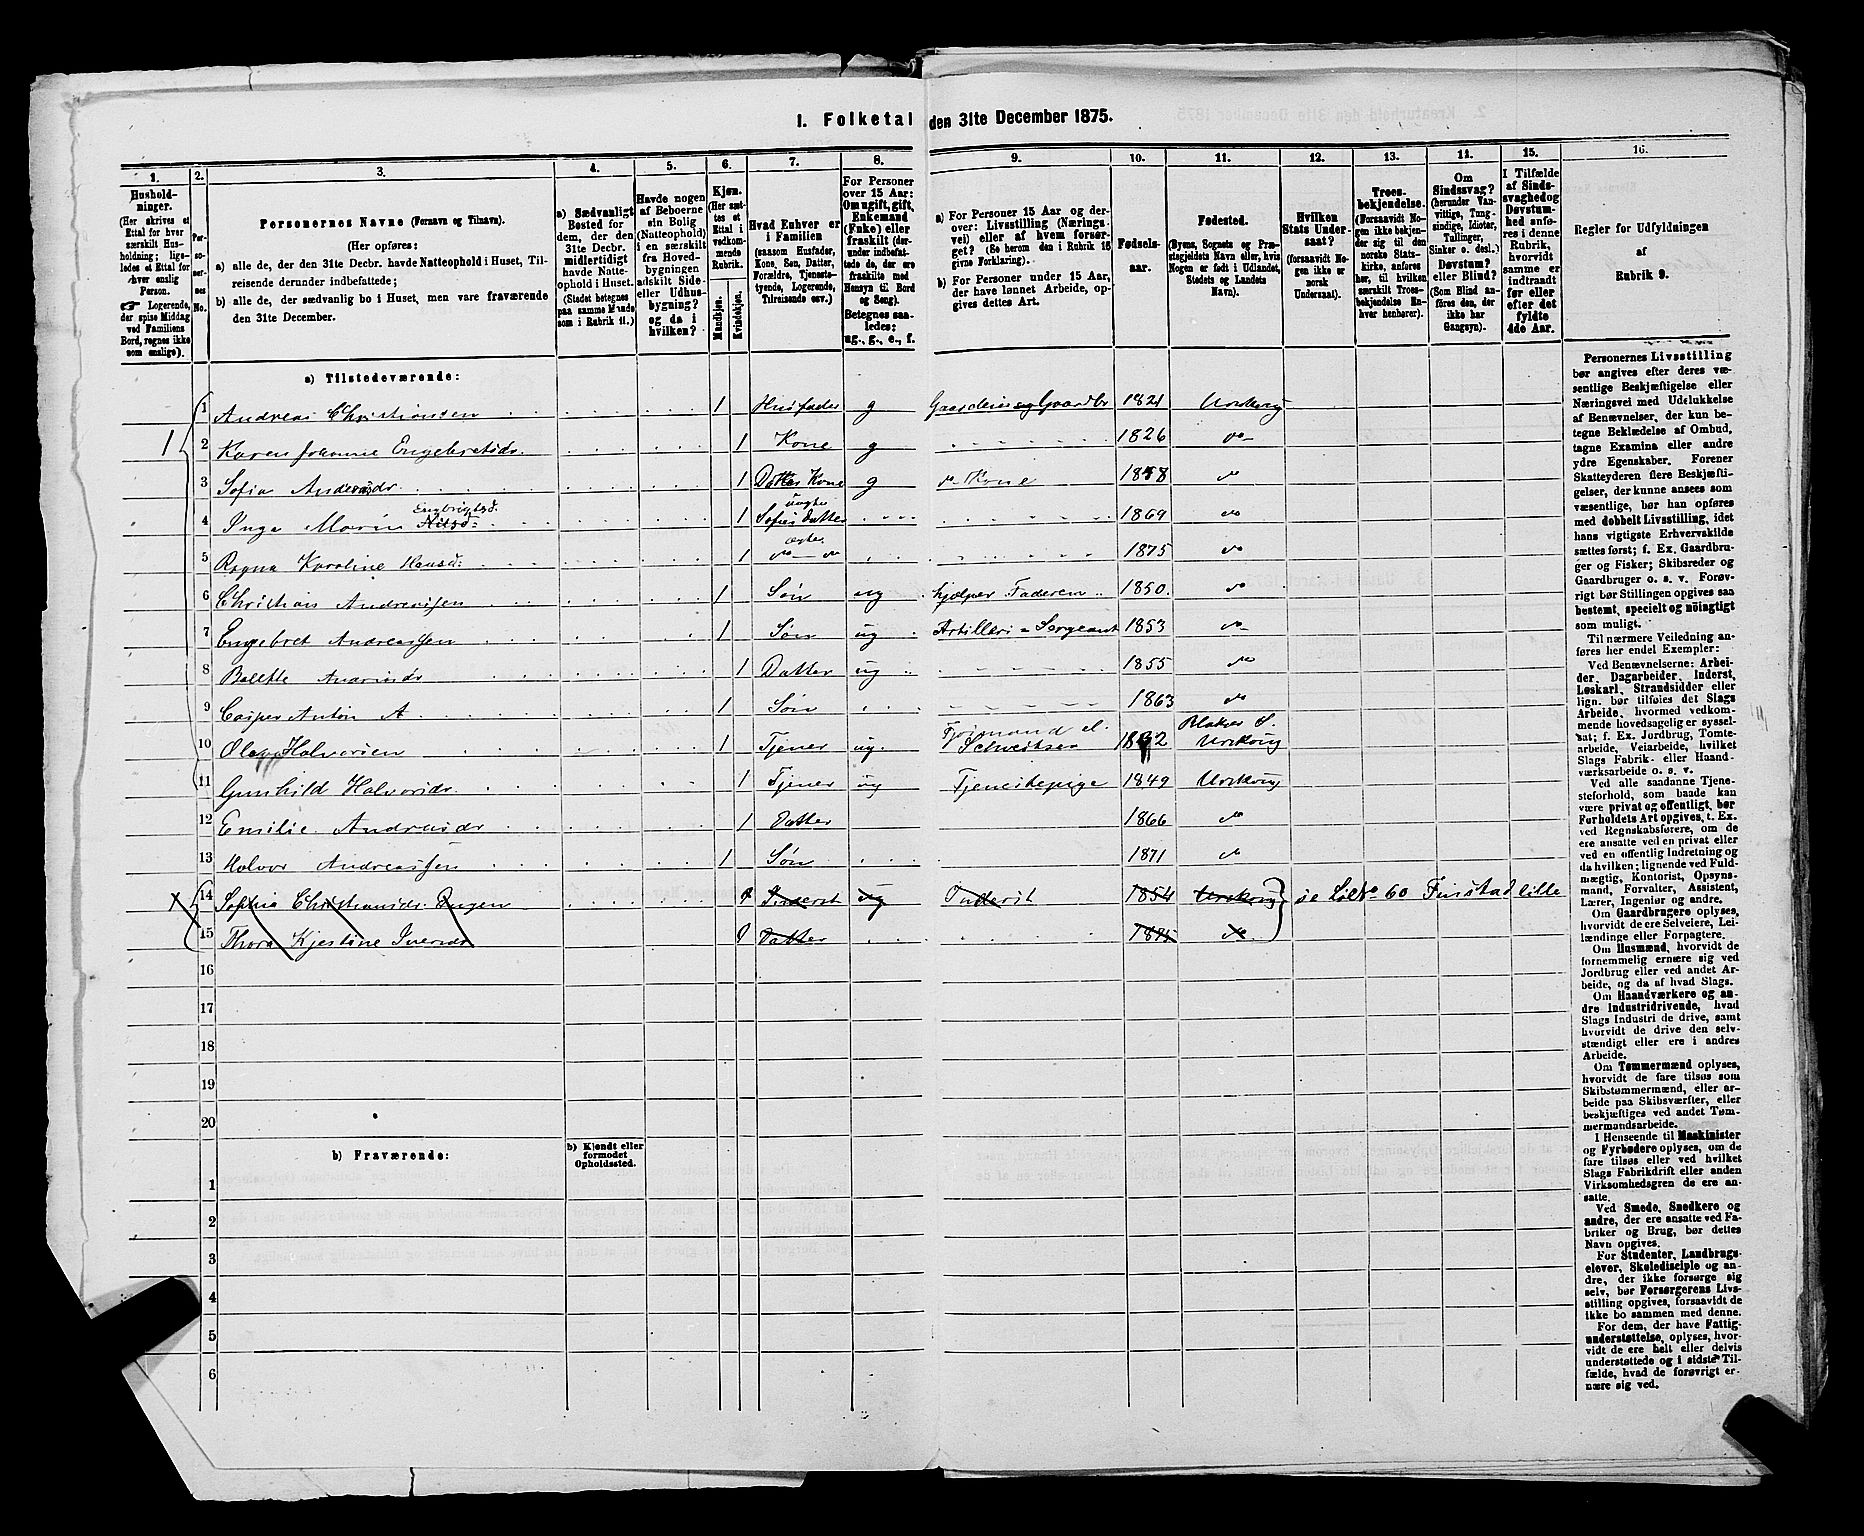 1. Folketal den 31te December 1875.
1. 2. 3. 4. 5. 6. 7. 8. 9. 10. 11. 12. 13. 14. 15. 16.
Hushold-
ninger.
(Her skrives et
Ettal for hver
særskilt Hus-
holdning; lige-
ledes et Ettal for
hver enslig
Person.
☞ Logerende,
der spise Middag
ved Familiens
Bord, regnes ikke
som enslige).
Per-
so-
ner-
nes
No.
Personernes Navne (Fornavn og Tilnavn).
(Her opføres:
a) alle de, der den 31te Decbr. havde Natteophold i Huset, Til-
reisende derunder indbefattede;
b) alle de, der sædvanlig bo i Huset, men vare fraværende
den 31te December.
a) Sædvanligt
Bosted for
dem, der den
31te Decbr.
midlertidigt
havde Natte-
ophold i Huset.
(Stedet betegnes
paa samme Maade
som i Rubrik 11.)
Havde nogen
af Beboerne
sin Bolig
(Natteophold)
i en særskilt
fra Hoved-
bygningen
adskilt Side-
eller Udhus-
bygning?
og da i
hvilken?
Kjøn.
(Her sæt-
tes et
Ettal i
vedkom-
mende
Rubrik.
Mandkjøn.
Kvindekjøn.
Hvad Enhver er
i Familien
(saasom Husfader,
Kone, Søn, Datter,
Forældre, Tjeneste-
tyende, Logerende,
Tilreisende osv.)
For Personer
over 15 Aar:
Om ugift, gift,
Enkemand
(Enke) eller
fraskilt (der-
under indbefat-
tede de, der ere
fraskilte med
Hensyn til Bord
og Seng).
Betegnes saa-
ledes:
ug., g., e., f.
a) For Personer 15 Aar og der-
over: Livsstilling (Nærings-
vei) eller af hvem forsør-
get? (Se herom den i Rubrik 16
givne Forklaring).
b) For Personer under 15 Aar,
der have lønnet Arbeide, op-
gives dettes Art.
Fødsels-
aar.
Fødested.
(Byens, Sognets og Præ-
stegjeldets Navn eller, hvis
Nogen er født i Udlandet,
Stedets og Landets
Navn).
Hvilken
Stats Under-
saat?
(forsaavidt No-
gen ikke er
norsk
Undersaat).
Troes-
bekjendelse.
(Forsaavidt No-
gen ikke bekjen-
der sig til den
norske Stats-
kirke, anføres
her, til hvilken
særskilt Troes-
bekjendelse En-
hver henhører).
Om
Sindssvag?
(herunder Van-
vittige, Tung-
sindige, Idioter,
Tullinger,
Sinker o. desl.)
Døvstum?
eller Blind?
(Som Blind an-
føres den, der
ikke har
Gangsyn).
I Tilfælde
af Sinds-
svaghed og
Døvstum-
hed anfø-
res i denne
Rubrik,
hvorvidt
samme er
indtraadt
før eller
efter det
fyldte
4de Aar.
Regler for Udfyldningen
af
Rubrik 9.
a) Tilstedeværende:
1 1 Andreas Christiansen 1 Husfader g Gaardeier og Gaardbr 1821 Urskoug
2 Karen Johanne Engebretsdr. 1 Kone g 1826 do
3 Sofia Andreasdr. 1 Datter Kone g do Kone 1848 do
4 Inga Marie Engbrigtsd. 1 uægte Sofies Datter 1869 do
5 Ragna Karoline Hansd: 1 ægte do do 1875 do
6 Christian Andreassen 1 Søn ug hjælper Faderen 1850 do
7 Engebret Andreassen 1 Søn ug Artilleri-Sergeant 1853 do
8 Bolette Andreasdr 1 Datter ug 1855 do
9 Casper Anton A 1 Søn 1863 do
10 Olaus Halvorsen 1 Tjener ug. Fjøsmand el. Schveitser 1832 Blaker S. Urskoug
11 Gunhild Halvorsdr. 1 Tjener ug Tjenestepige 1849 Urskoug
12 Emilie Andreasdr 1 Datter 1866 do
13 Halvor Andreassen 1 Søn 1871 do
14 Sophie Christiansdr. Engen Inderst ug Inderst 1854 Urskoug se No 60 Finstad lille
15 Thora Kjestine Iversdr Datter 1875 do
16
17
18
19
20
b) Fraværende:
b) Kjendt eller
formodet
Opholdssted.
1
2
3
4
5
6
Personernes Livsstilling
bør angives efter deres væ-
sentlige Beskjæftigelse eller
Næringsvei med Udelukkelse
af Benævnelser, der kun be-
tegne Beklædelse af Ombud,
tagne Examina eller andre
ydre Egenskaber. Forener
Skatteyderen flere Beskjæfti-
gelser, der kunne ansees som
væsentlige, bør han opføres
med dobbelt Livsstilling, idet
hans vigtigste Erhvervskilde
sættes først; f. Ex. Gaardbru-
ger og Fisker; Skibsreder og
Gaardbruger o. s. v. Forøv-
rigt bør Stillingen opgives saa
bestemt, specielt og nöiagtigt
som muligt.
Til nærmere Veiledning an-
føres her endel Exempler:
Ved Benævnelserne: Arbei-
der, Dagarbeider, Inderst,
Løskarl, Strandsidder eller
lign. bør tilføies det Slags
Arbeide, hvormed vedkom-
mende hovedsagelig er syssel-
sat; f. Ex. Jordbrug, Tomte-
arbeide, Veiarbeide, hvilket
Slags Fabrik- eller Haand-
værksarbeide o. s. v.
Ved alle saadanne Tjene-
steforhold, som baade kan
være privat og offentligt, bør
Forholdets Art opgives, t. Ex.
ved Regnskabsførere, om de
ere ansatte ved en privat eller
ved en offentlig Indretning og
da hvilken; lignende ved Fuld-
mægtig, Kontorist, Opsyns-
mand, Forvalter, Assistent,
Lærer, Ingeniør og andre.
Om Gaardbrugere oplyses,
hvorvidt de ere Selveiere, Lei-
lændinge eller Forpagtere.
Om Husmænd, hvorvidt de
fornemmelig ernære sig ved
Jordbrug eller ved andet Ar-
beide, og da af hvad Slags.
Om Haandværkere og an-
dre Industridrivende, hvad
Slags Industri de drive, samt
hvorvidt de drive den selv-
stændigt eller ere i andres
Arbeide.
Om Tømmermænd oplyses,
hvorvidt de fare tilsøs som
Skibstømmermænd, eller ar-
beide paa Skibsværfter, eller
beskjæftiges ved andet Tøm-
mermandsarbeide.
I Henseende til Maskinister
og Fyrbødere oplyses, om de
fare tilsøs eller ved hvilket
Slags Fabrikdrift eller anden
Virksomhedsgren de ere an-
satte.
Ved Smede, Snedkere og
andre, der ere ansatte ved Fa-
briker og Brug, bør dettes
Navn opgives.
For Studenter, Landbrugs-
elever, Skoledisciple og an-
dre, der ikke forsørge sig
selv, bør Forsørgerens Livs-
stilling opgives, forsaavidt de
ikke bo sammen med denne.
For dem, der have Fattig-
understøttelse, oplyses, hvor-
vidt de ere helt eller delvis
understøttede og i sidste Til-
fælde, hvad de forøvrigt er-
nære sig ved.